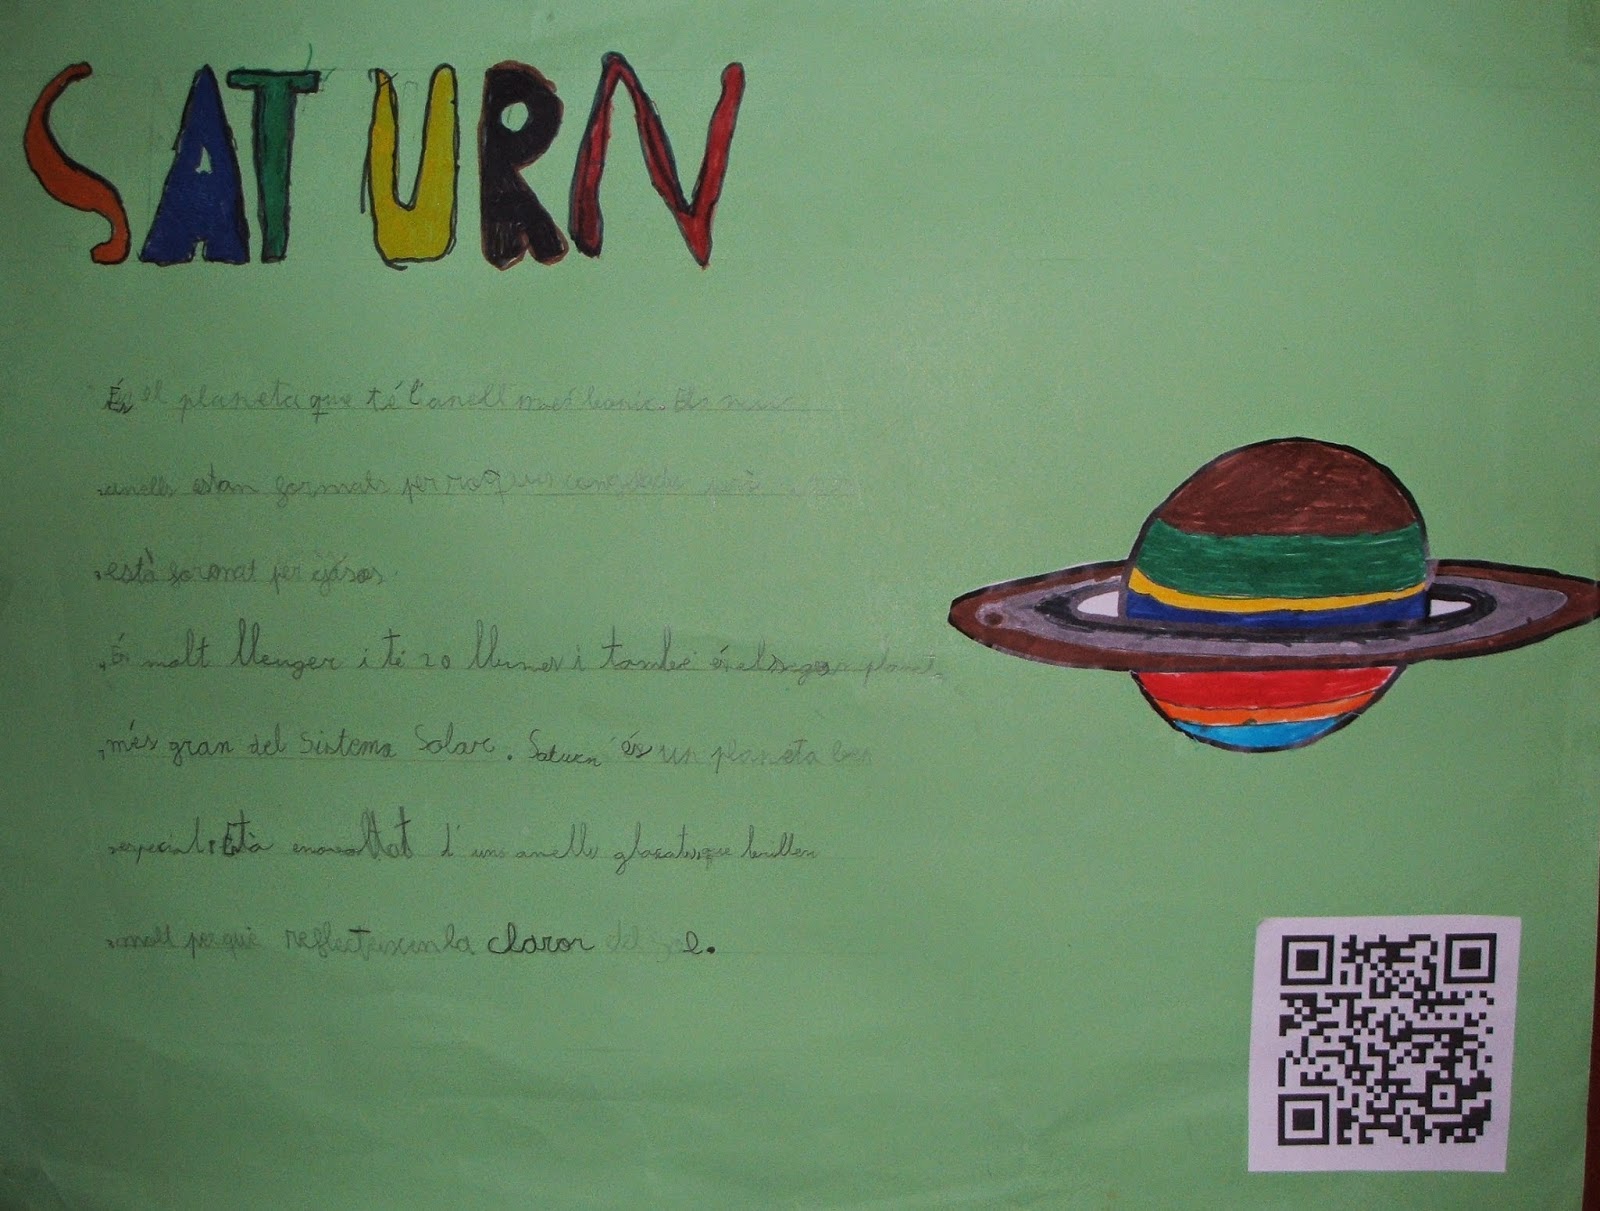 SATURN
És el planeta que té l'anell més bonic. Els seus
anells estan formats per roques congelades però
està format per gasos.
És molt lleuger i té 20 llunes i també és el segon planeta
més gran del Sistema Solar. Saturn és un planeta ben
especial. Està envoltat d'uns anells glaçats que brillen
molt perquè reflecteixen la claror del sol.